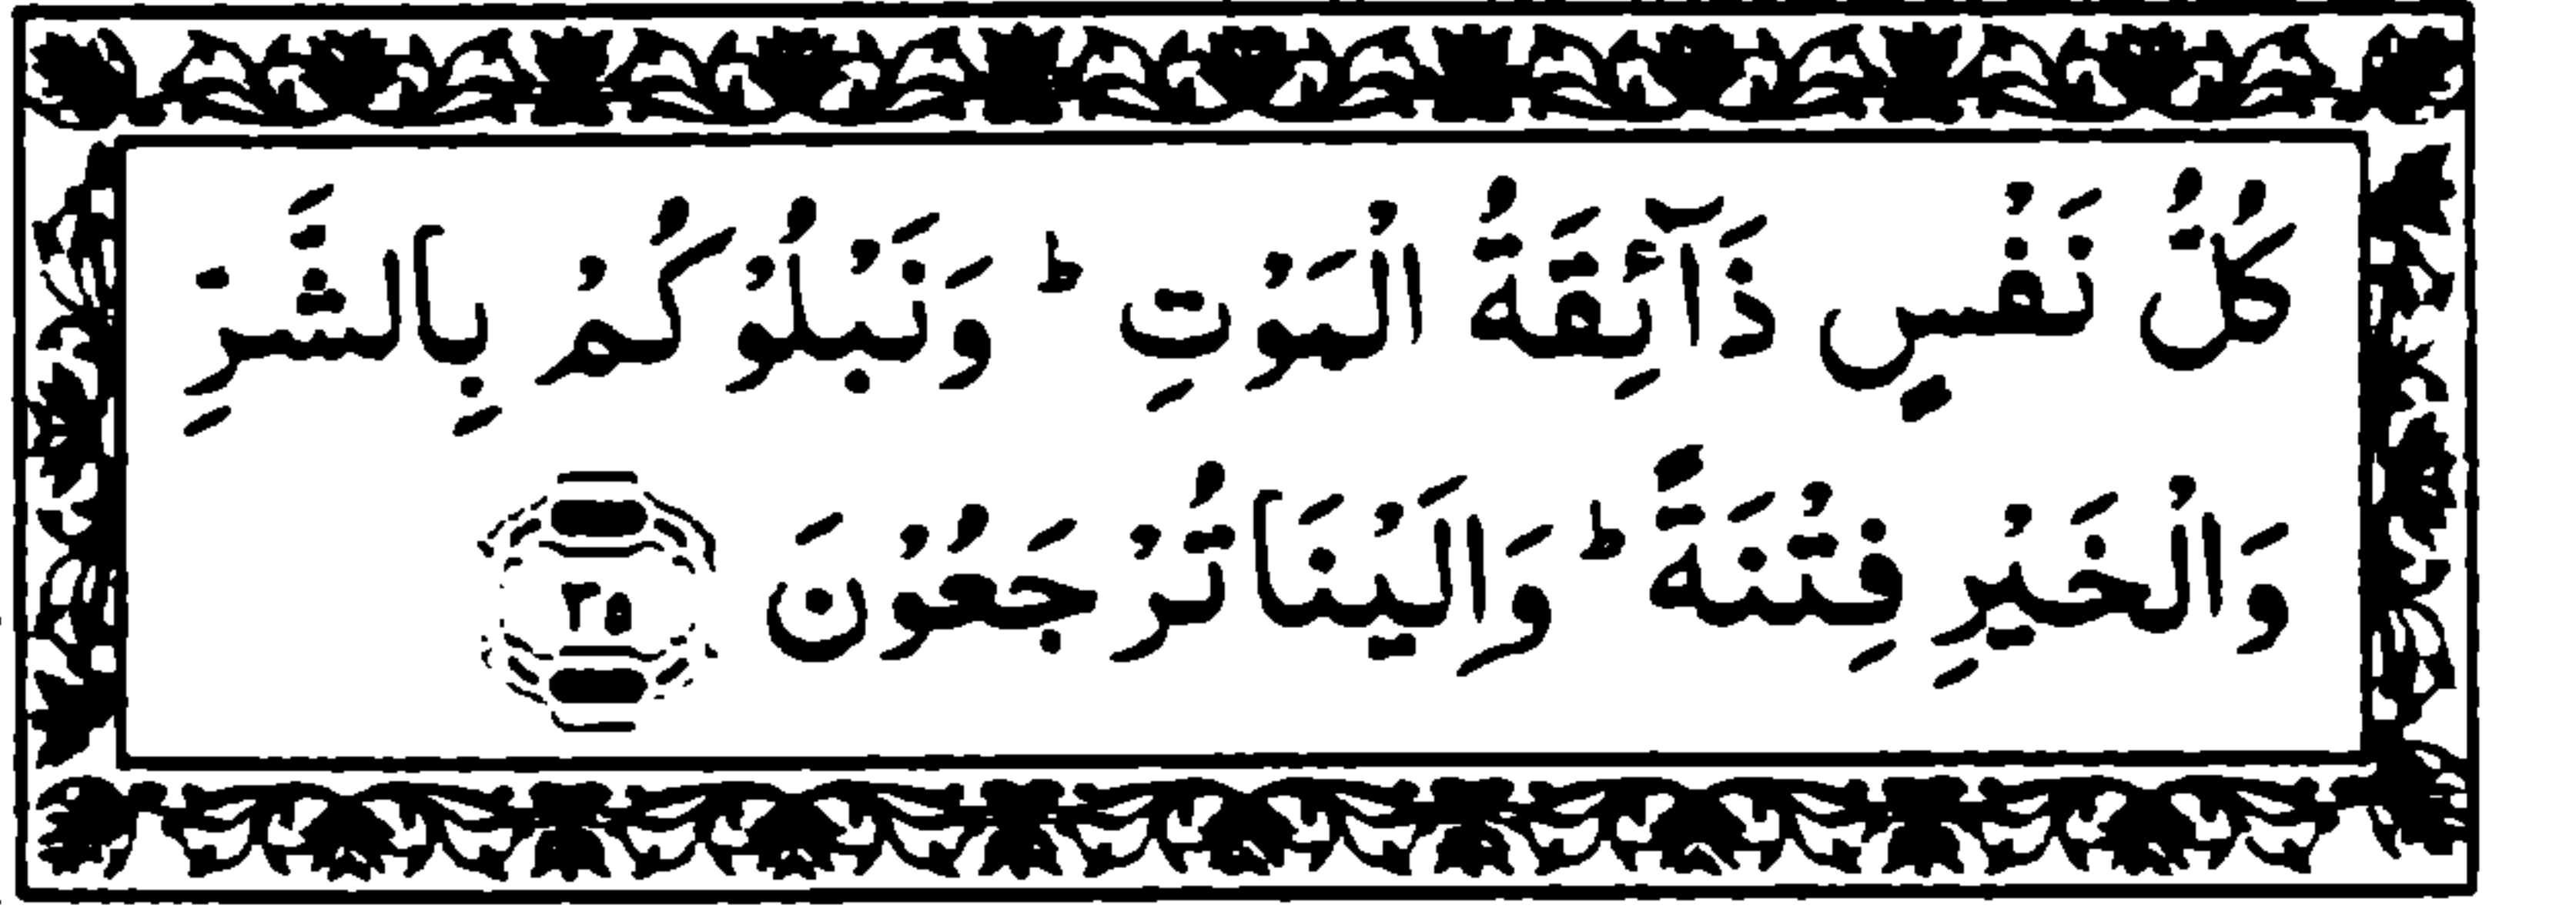 كُلُّ نَفْسٍ ذَآئِقَةُ الْمَوْتِ ؕ وَنَبْلُوْكُمْ بِالشَّرِّ
وَالْخَيْرِ فِتْنَةً ؕ وَاِلَيْنَا تُرْجَعُوْنَ ۳۵